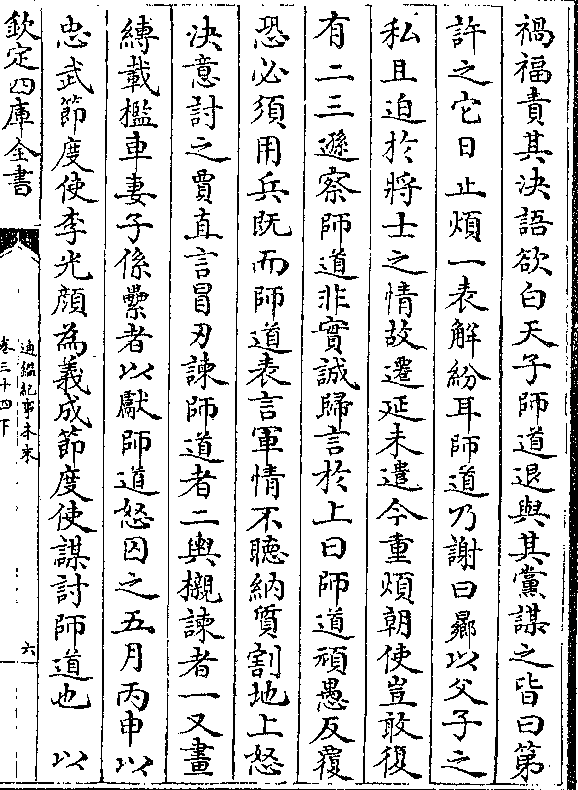 禍福責其决語欲白天子師道退與其黨謀之皆曰第
許之它日止煩一表解紛耳師道乃謝曰曏以父子之
私且迫於將士之情故遷延未遣今重煩朝使豈敢復
有二三遜察師道非實誠歸言於上曰師道頑愚反覆
恐必須用兵既而師道表言軍情不聽納質割地上怒
决意討之賈直言冒刃諫師道者二輿櫬諫者一又畫
縛載檻車妻子係纍者以獻師道怒囚之五月丙申以
忠武節度使李光顔為義成節度使謀討師道也 以
欽定四庫全書
通鑑紀事本末
卷三十四下
六